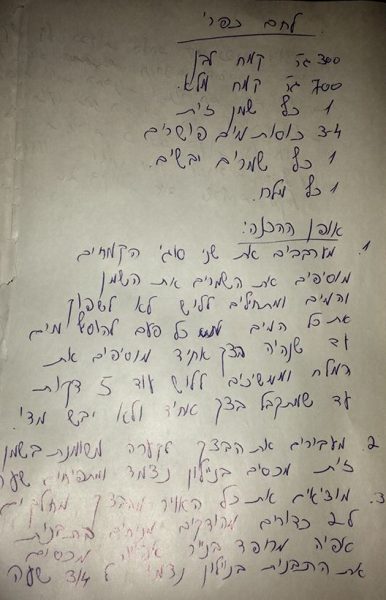 לחם כפרי
300 גר קמח לבן
700 גר קמח מלא.
1 כף שמן זית
3-4 כוסות מים פושרים
1 כף שמרים יבשים.
1 כף מלח.
אופן ההכנה:
1. מערבבים את שני סוגי הקמחים
מוסיפים את השמרים את השמן
והמים ומתחילים ללוש לא לשפוך
את כל המים כל פעם להוסיף מים
עד שנהיה בצק אחיד מוסיפים את
המלח וממשיכים ללוש עוד 5 דקות
עד שמתקבל בצק אחיד ולא יבש מדי.
2. מעבירים את הבצק לקערה משומנת בשמן
זית מכסים בניילון נצמד ומתפיחים שעה
3. מוציאים את כל האויר מהבצק מחלקים
ל-2 כדורים מהודקים מניחים בתבנית
אפיה מרופד בנייר אפייה מכסים
את התבנית בניילון נצמד ל 3/4 שעה